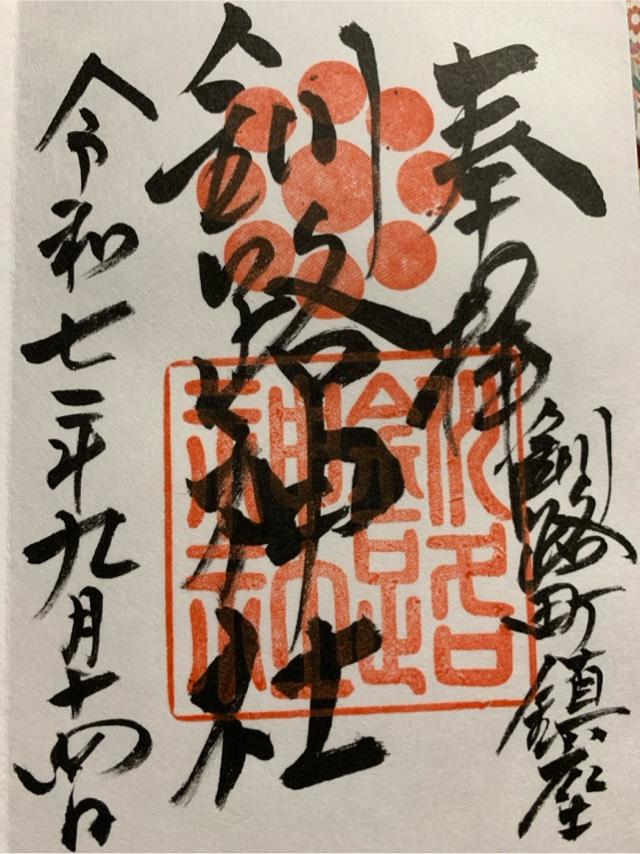 奉拝
釧路町鎮座
釧路神社
釧路神社
令和七年九月十四日